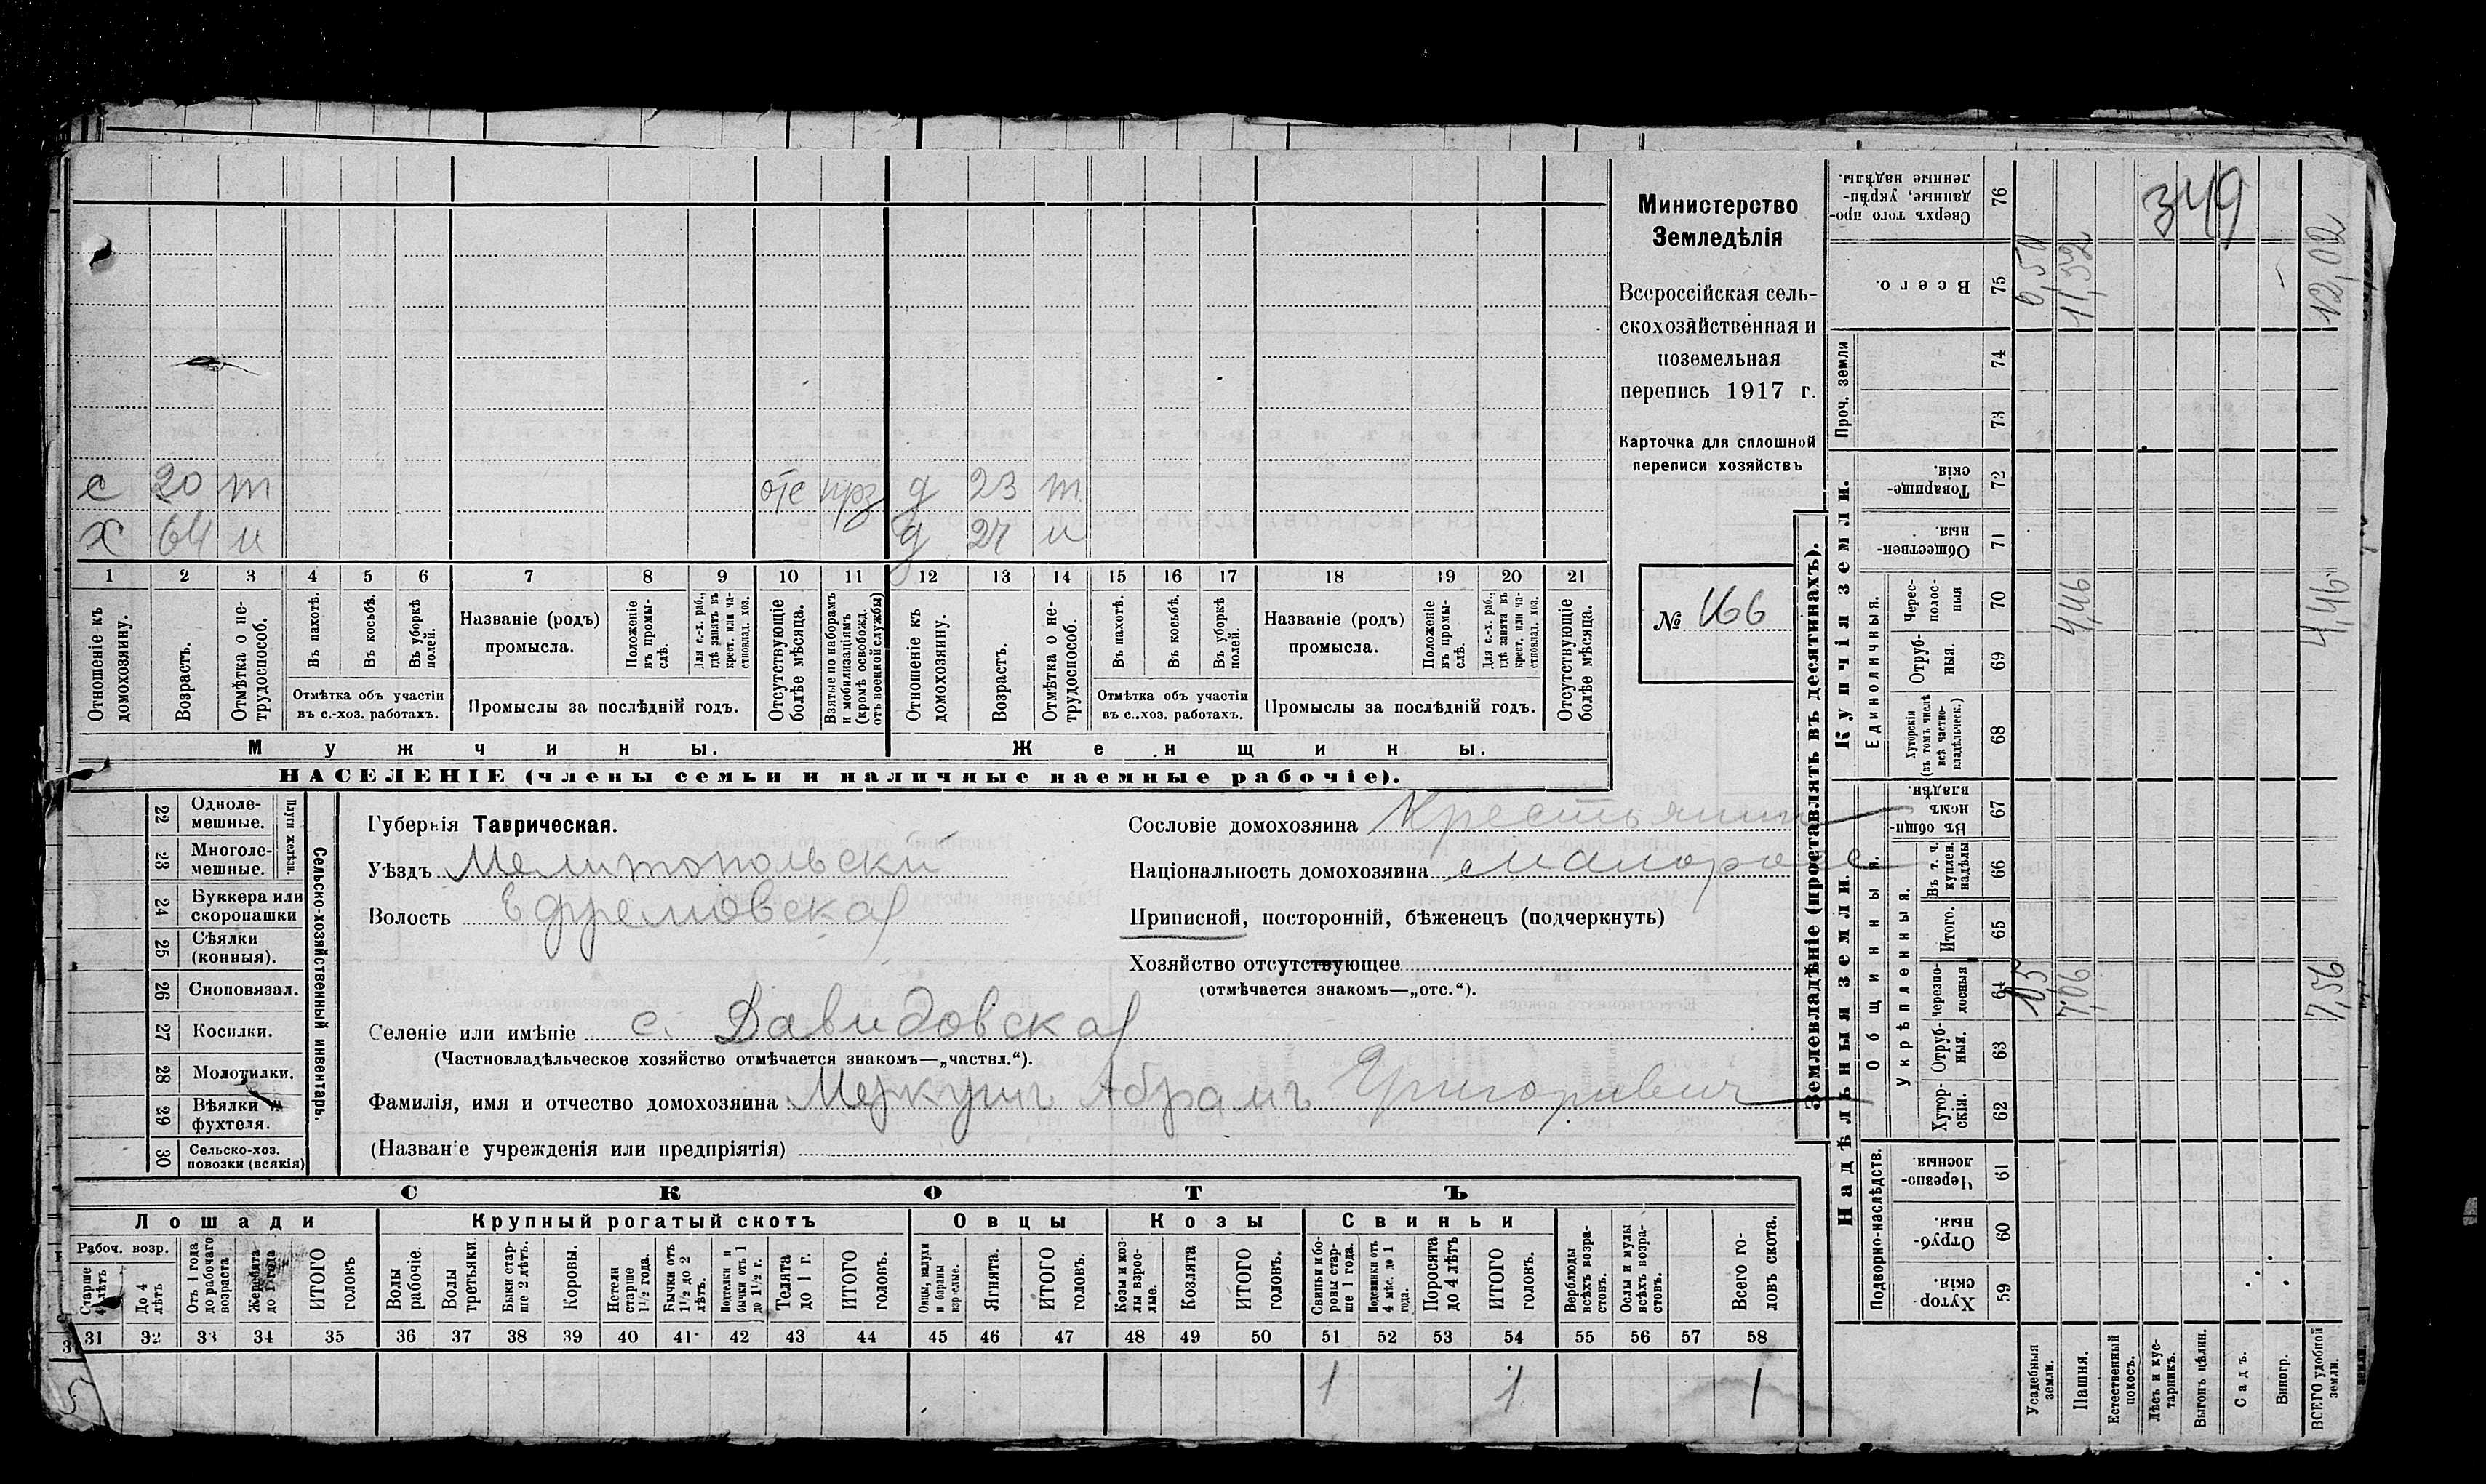 с 20 т отс прз д 23 т
х 64 и д 24 и
1 2 3 4 5 6 7 8 9 10 11 12 13 14 15 16 17 18 19 20 21
Отношеніе къ домохозяину.
Возрастъ.
Отмѣтка о не-трудоспособ.
Въ пахотѣ.
Въ косьбѣ.
Въ уборкѣ полей.
Отмѣтка объ участіи
въ с.-хоз. работахъ.
Названіе (родъ)
промысла.
Положеніе въ промы-слѣ.
Для с.-х. раб., гдѣ занятъ въ крест. или ча-стновлад. хоз.
Промыслы за послѣдній годъ.
Отсутствующіе болѣе мѣсяца.
Взятые по наборамъ и мобилизаціямъ (кромѣ освобожд. отъ военной службы)
Отношеніе къ домохозяину.
Возрастъ.
Отмѣтка о не-трудоспособ.
Въ пахотѣ.
Въ косьбѣ.
Въ уборкѣ полей.
Отмѣтка объ участіи
въ с.-хоз. работахъ.
Названіе (родъ)
промысла.
Положеніе въ промы-слѣ.
Для с.-х. раб., гдѣ занята въ крест. или ча-стновлад. хоз.
Промыслы за послѣдній годъ.
Отсутствующіе болѣе мѣсяца.
Мужчины. Женщины.
НАСЕЛЕНІЕ (члены семьи и наличные наемные рабочіе).
Министерство
Земледѣлія
Всероссійская сель-
скохозяйственная и
поземельная
перепись 1917 г.
Карточка для сплошной
переписи хозяйствъ
№ 166
22 Одноле-мешные.
23 Многоле-мешные.
Плуги желѣзн.
24 Буккера или скоропашки
25 Сѣялки (конныя).
26 Сноповязал.
27 Косилки.
28 Молотилки.
29 Вѣялки и фухтеля.
30 Сельско-хоз. повозки (всякія)
Сельско-хозяйственный инвентарь.
Губернія Таврическая.
Уѣздъ Мелитопольски
Волость Ефремовская
Сословіе домохозяина Крестьянин
Національность домохозяина малоросс
Приписной, посторонній, бѣженецъ (подчеркнуть)
Хозяйство отсутствующее
(отмѣчается знакомъ—„отс.“).
Селеніе или имѣніе с. Давидовская
(Частновладѣльческое хозяйство отмѣчается знакомъ—„частвл.“).
Фамилія, имя и отчество домохозяина Абрамъ Григориевич
(Названіе учрежденія или предпріятія)
СКОТЪ
Лошади Крупный рогатый скотъ Овцы Козы Свиньи
Рабоч. возр.
Старше 4 лѣтъ
До 4 лѣтъ
Отъ 1 года до рабочаго возраста
Жеребята до 1 года
ИТОГО головъ
Волы рабочіе.
Волы третьяки.
Быки стар-ше 2 лѣтъ.
Коровы.
Нетели старше 1½ года.
Бычки отъ 1½ до 2 лѣтъ.
Подтелки и бычки отъ 1 до 1½ г.
Телята до 1 г.
ИТОГО головъ.
Овцы, валухи и бараны взрослые.
Ягнята.
ИТОГО головъ.
Козы и коз-лы взрос-лые.
Козлята
ИТОГО головъ.
Свиньи и бо-ровы стар-ше 1 года.
Подсвинки отъ 4 мѣс. до 1 года.
Поросята до 4 лѣтъ
ИТОГО головъ.
Верблюды всѣхъ возра-стовъ.
Ослы и мулы всѣхъ возра-стовъ.
Всего го-ловъ скота.
31 32 33 34 35 36 37 38 39 40 41 42 43 44 45 46 47 48 49 50 51 52 53 54 55 56 57 58
1 1 1
Землевладѣніе (проставлять въ десятинахъ).
Надѣльныя земли. Купчія земли. Проч. земли
Подворно-наслѣдств. Общинныя. Укрѣпленныя. Единоличныя.
Сверхъ того про-данные, укрѣп-ленные надѣлы. 76
Всего. 75
74
73
Товарище-скія. 72
Обществен-ныя. 71
Черес-полос-ныя 70
Отруб-ныя. 69
Хуторскія (въ томъ числѣ всѣ частно-владѣльческ.) 68
Въ общи-номъ владѣн. 67
Въ т. ч. куплен. надѣлы 66
Итого. 65
черезпо-лосныя 64
Отруб-ныя. 63
Хутор-скія. 62
Черезпо-лосныя. 61
Отруб-ныя. 60
Хутор-скія. 59
349
0,50
11,52
12,02
4,46
4,46
0,5
7,06
7,56
Усадебныя земли.
Пашня.
Естественный покосъ.
Лѣсъ и кус-тарникъ.
Выгонъ цѣлин.
Садъ.
Виногр.
ВСЕГО удобной земли.